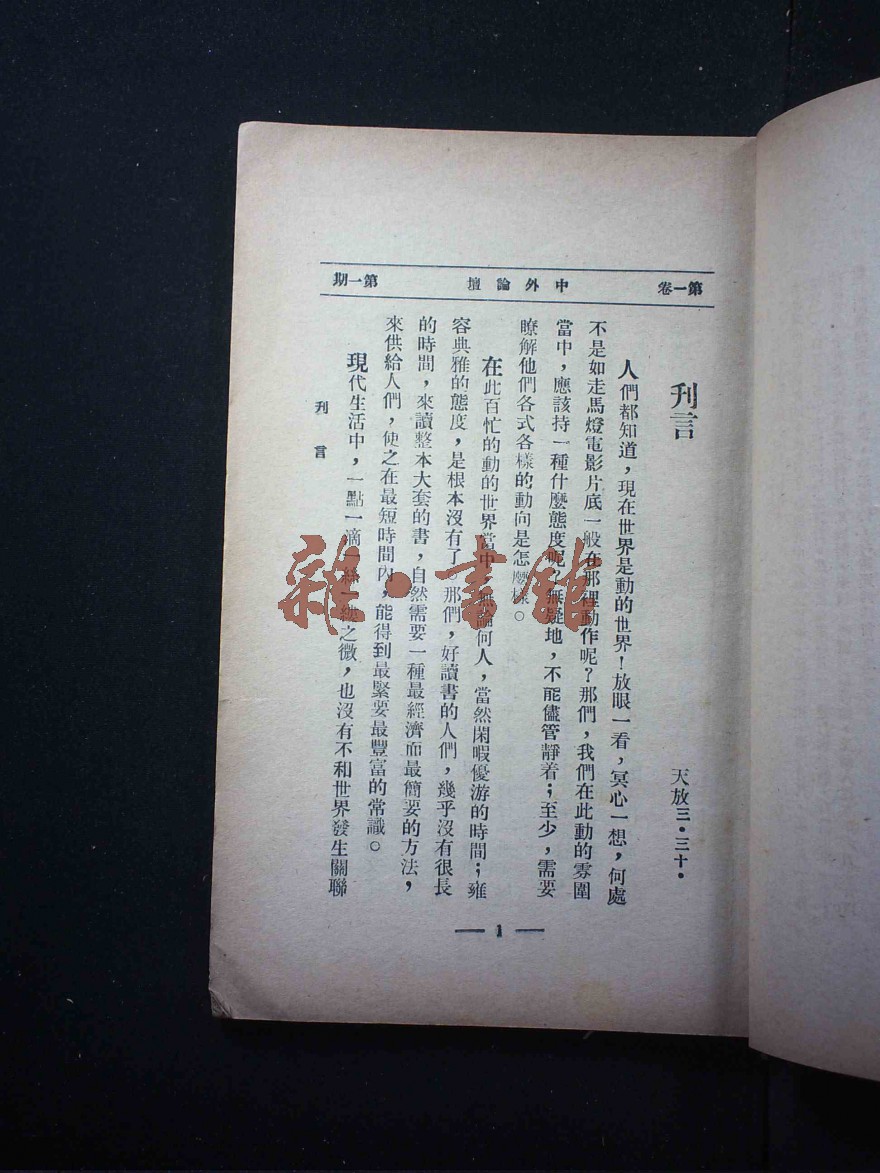 第一卷 中外論壇 第一期
刋言
天放三・三十・
人們都知道，現在世界是動的世界！放眼一看，冥心一想，何處
不是如走馬燈電影片底一般在那裡動作呢？那們，我們在此動的雰圍
當中，應該持一種什麼態度呢，無疑地，不能儘管靜着；至少，需要
瞭解他們各式各樣的動向是怎麼樣。
在此百忙的動的世界當中，無論何人，當然閑暇優游的時間；雍
容典雅的態度，是根本沒有了。那們，好讀書的人們，幾乎沒有很長
的時間，來讀整本大套的書，自然需要一種最經濟而最簡要的方法，
來供給人們，使之在最短時間內，能得到最緊要最豐富的常識。
現代生活中，一點一滴一絲一之微，也沒有不和世界發生關聯
刋言
1
雜・書館